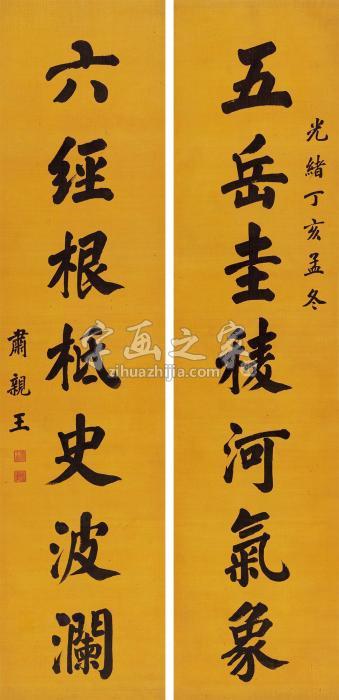 光緒丁亥孟冬
五岳圭稜河氣象
六經根柢史波瀾
肅親王
字画之家
zihuazhijia.com